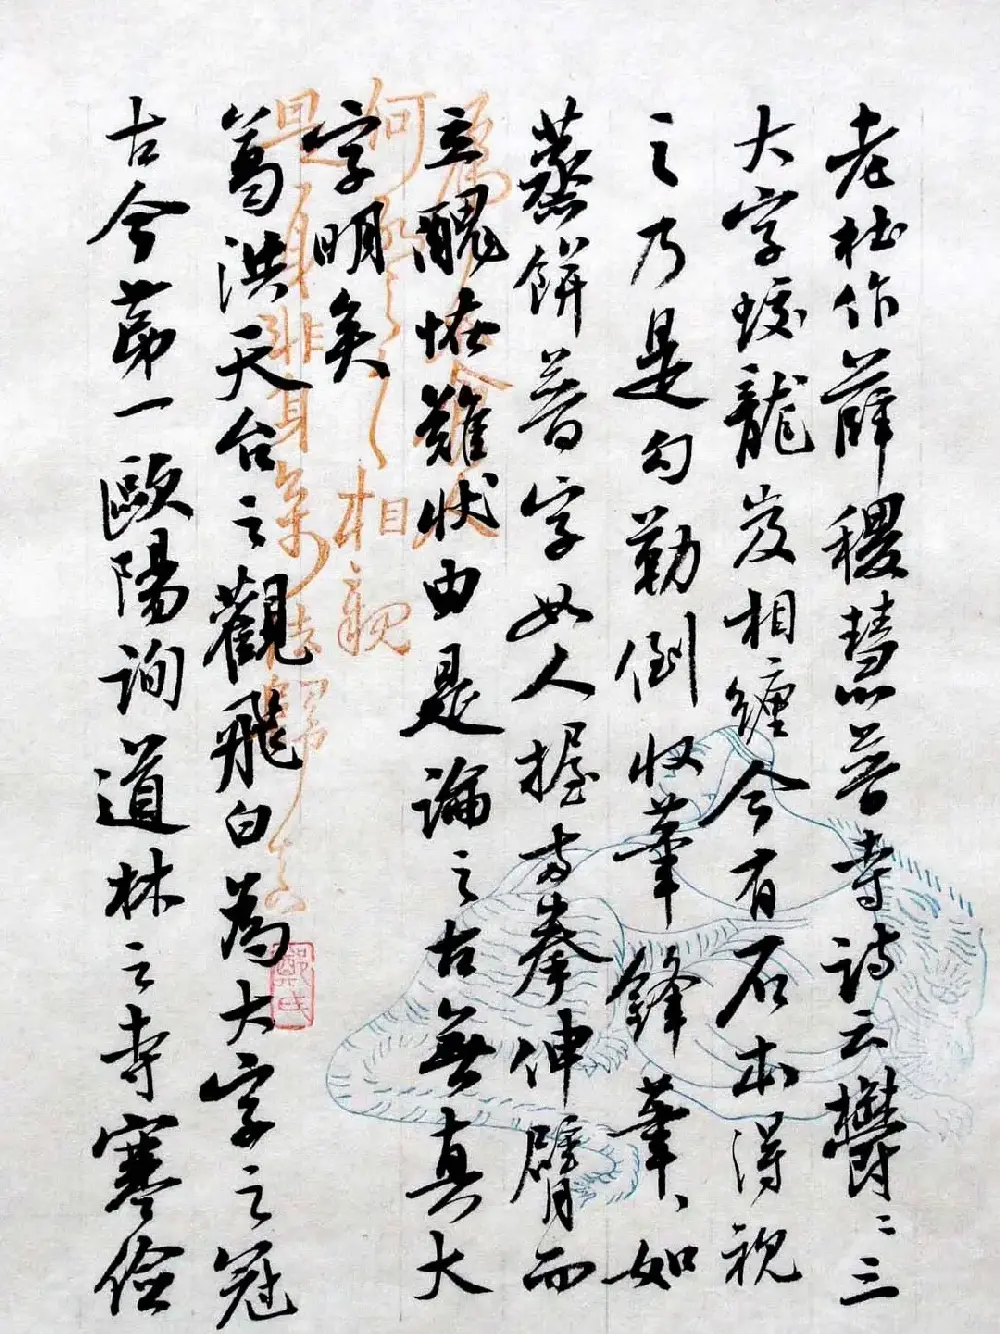 老杜作薛稷慧普寺詩云鬱〻三
大字蛟龍岌相纏今有石本得視
之乃是勾勒倒收筆鋒筆〻如
蒸餅普字如人握兩拳伸臂而
立醜怪難狀由是論之古無真大
字明矣
葛洪天台之觀飛白為大字之冠
古今第一歐陽詢道林之寺寒儉
相親
是身非身
鄭氏